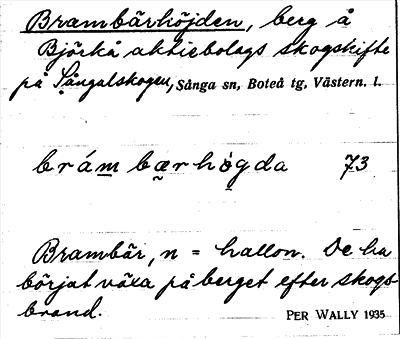 Brambärhöjden, berg å
Björkå aktiebolags skogskifte
på Sångalskogen, Sånga sn, Boteå tg, Västern. l.
brám bær hògda 73
Brambär, n = hallon. De ha
börjat växa på berget efter skogs-
brand.
PER WALLY 1935